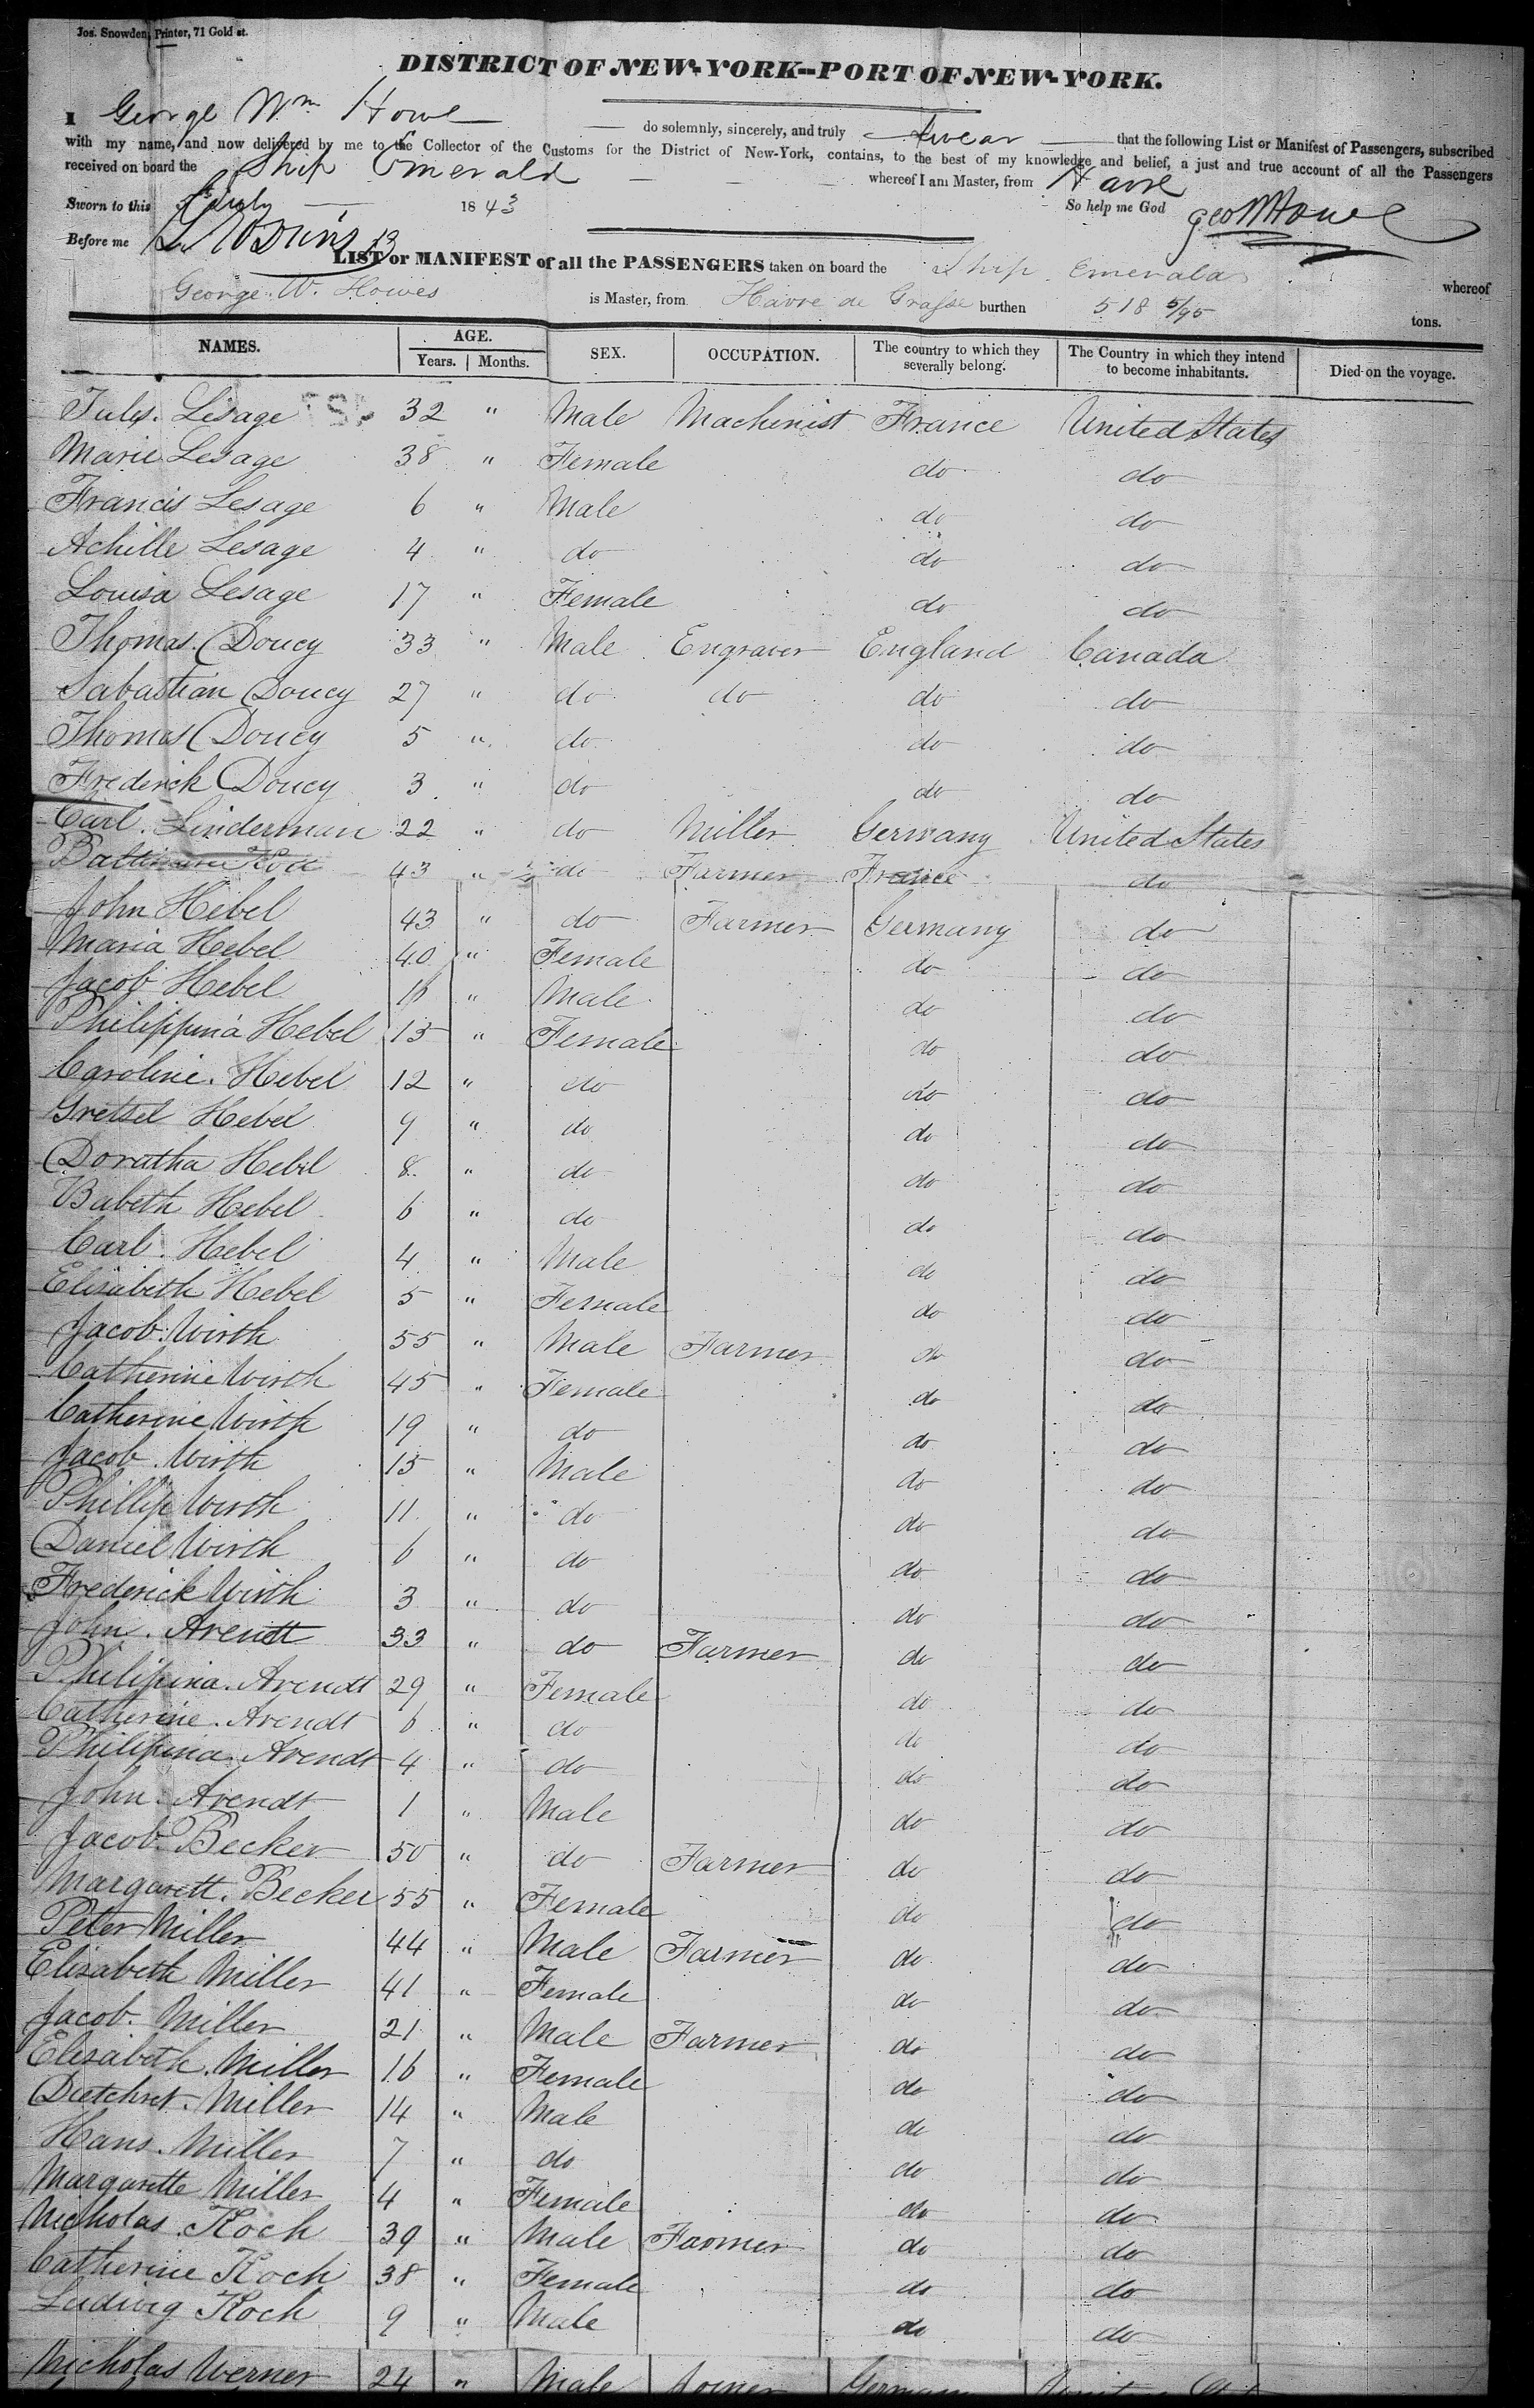 Jos. Snowden, Printer, 71 Gold st.
DISTRICT OF NEW-YORK--PORT OF NEW-YORK.
I George Wm Howe do solemnly, sincerely, and truly swear that the following List or Manifest of Passengers, subscribed
with my name, and now delivered by me to the Collector of the Customs for the District of New-York, contains, to the best of my knowledge and belief, a just and true account of all the Passengers
received on board the Ship Emerald whereof I am Master, from Havre
Sworn to this 1843 So help me God Geo W Howe
Before me
LIST or MANIFEST of all the PASSENGERS taken on board the Ship Emerald whereof
George W. Howes is Master, from Havre de Grasse burthen 518 5/95 tons.
NAMES. AGE. Years. Months. SEX. OCCUPATION. The country to which they severally belong. The Country in which they intend to become inhabitants. Died on the voyage.
Jules. Lesage 32 " Male Machinist France United States
Marie Lesage 38 " Female do do
Francis Lesage 6 " Male do do
Achille Lesage 4 " do do do
Louisa Lesage 17 " Female do do
Thomas Doucy 33 " Male Engraver England Canada
Sabastian Doucy 27 " do do do do
Thomas Doucy 5 " do do do
Frederick Doucy 3 " do do do
Carl. Linderman 22 " do Miller Germany United States
43 " do Farmer France do
John Hebel 43 " do Farmer Germany do
Maria Hebel 40 " Female do do
Jacob Hebel " Male do do
Philippina Hebel 15 " Female do do
Caroline. Hebel 12 " do do do
Gretsel Hebel 9 " do do do
Doratha Hebel 8 " do do do
Babeth Hebel 6 " do do do
Carl. Hebel 4 " Male do do
Elisabeth Hebel 5 " Female do do
Jacob. Wirth 55 " Male Farmer do do
Catherine Wirth 45 " Female do do
Catherine Wirth 19 " do do do
Jacob. Wirth 15 " Male do do
Phillip Wirth 11 " do do do
Daniel Wirth 6 " do do do
Frederick Wirth 3 " do do do
John. Arendt 33 " do Farmer do do
Philipina. Arendt 29 " Female do do
Catherine. Arendt 6 " do do do
Philipina. Arendt 4 " do do do
John. Arendt 1 " Male do do
Jacob. Becker 50 " do Farmer do do
Margarett. Becker 55 " Female do do
Peter Miller 44 " Male Farmer do do
Elisabeth Miller 41 " Female do do
Jacob. Miller 21 " Male Farmer do do
Elisabeth. Miller 16 " Female do do
Miller 14 " Male do do
Hans. Miller 7 " do do do
Margarette Miller 4 " Female do do
Nicholas Koch 39 " Male Farmer do do
Catherine Koch 38 " Female do do
Ludwig Koch 9 " Male do do
Nicholas Werner 24 " Male Joiner